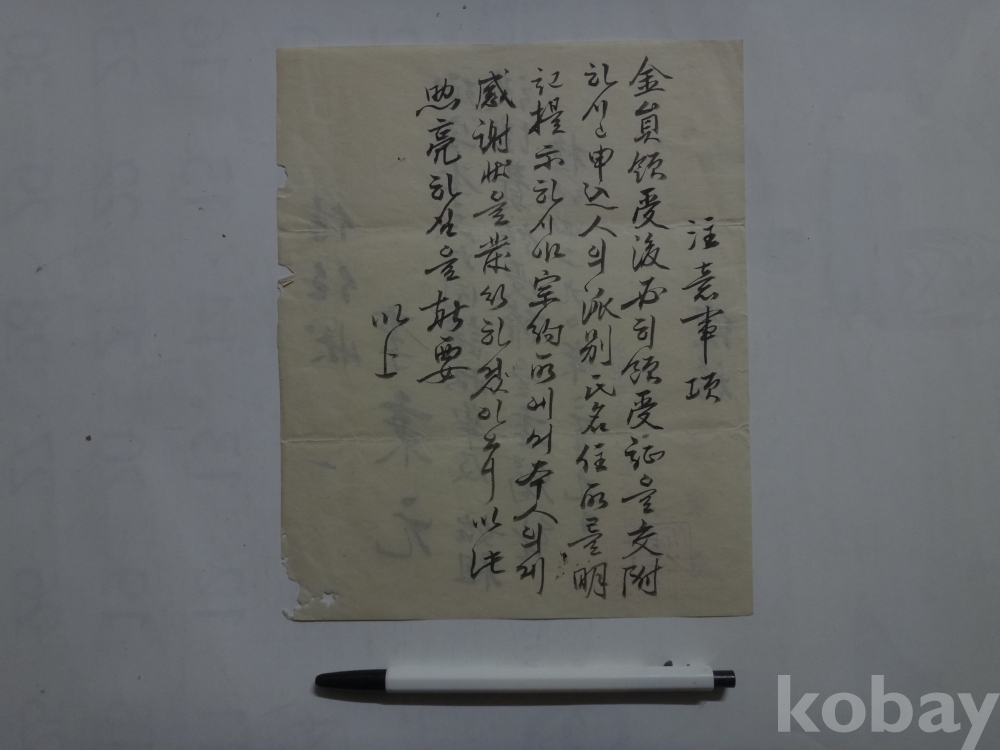 注意事項
金員領受後 必히 領受証을 交附
하시고 申込人의 派別 氏名 住所를 明
記 提示하시면 宗約所에서 本人의게
感謝狀을 發行하겠아오니 以此
照亮하심을 務要
以上
kobay